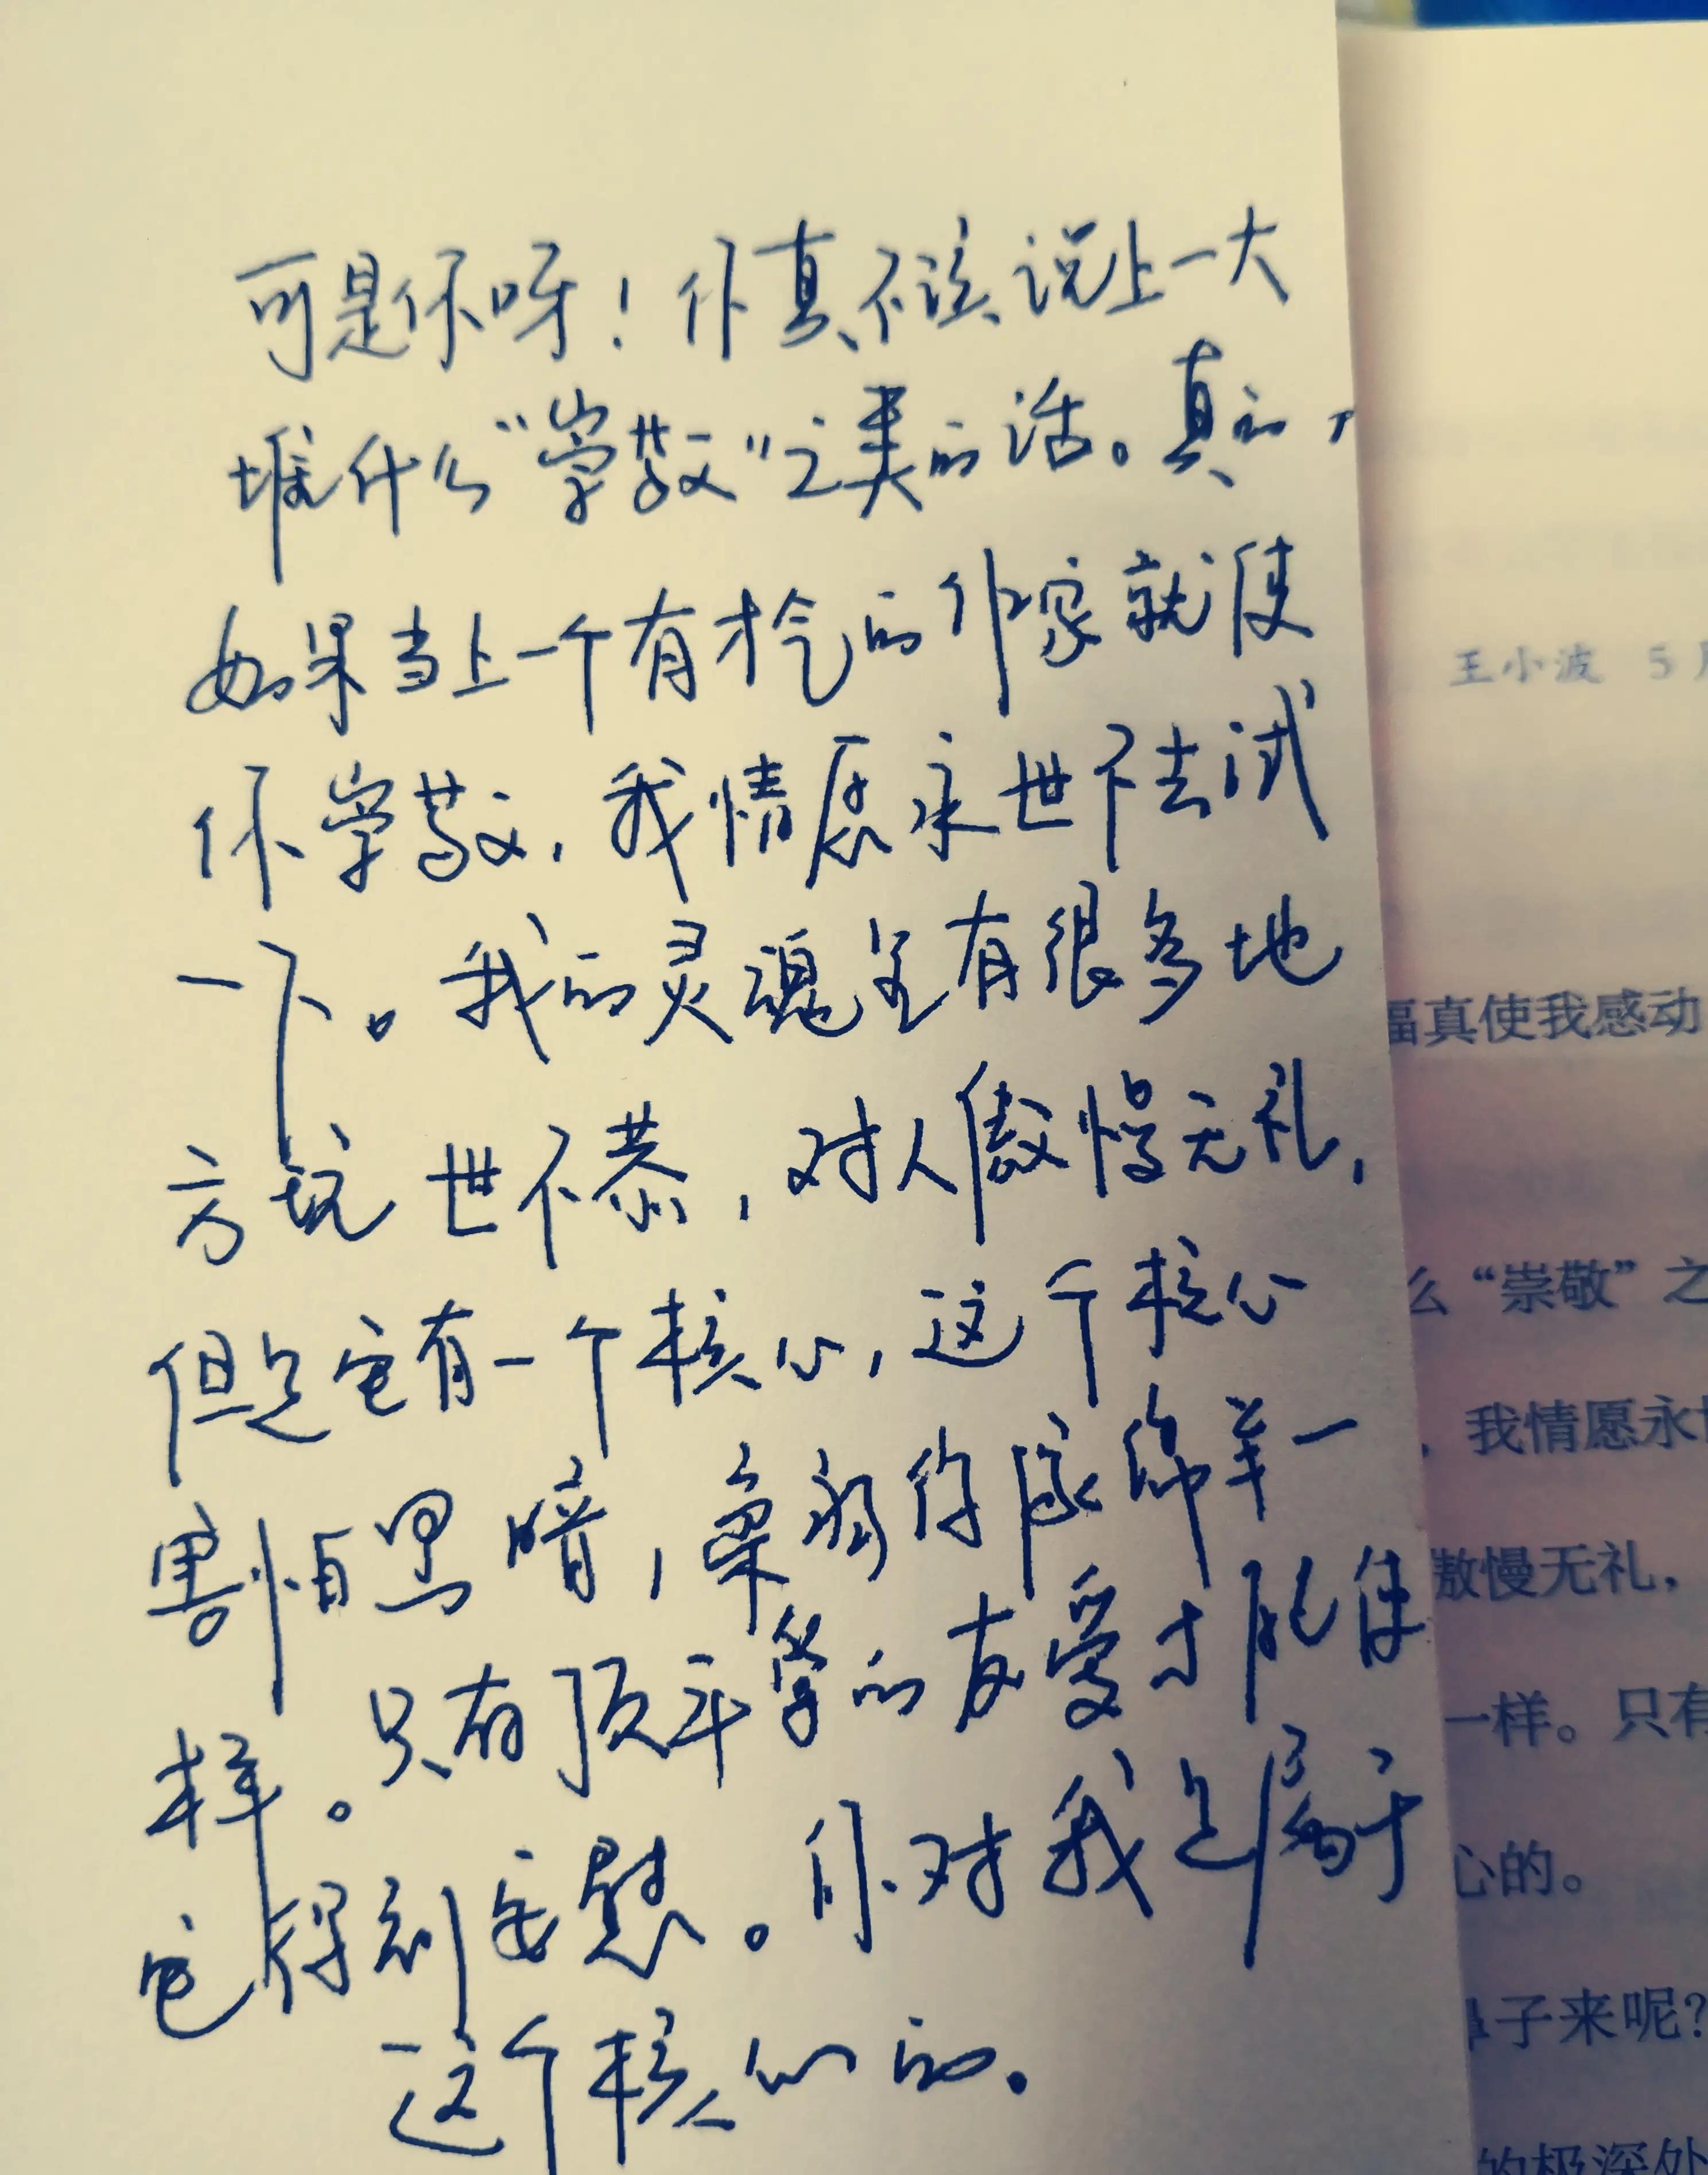 可是你呀！你真不该说上一大
堆什么“崇敬”之类的话。真的，
如果当上一个有才气的作家就使
你崇敬，我情愿永世不去试
一下。我的灵魂里有很多地
方玩世不恭，对人傲慢无礼，
但是它有一个核心，这个核心
害怕黑暗，柔弱得像绵羊一
样。只有顶平等的友爱才能使
它得到安慰。你对我是属于
这个核心的。
王小波 5月
福真使我感动
么“崇敬”之
，我情愿永世
傲慢无礼，
一样。只有
心的。
鼻子来呢？
的极深处